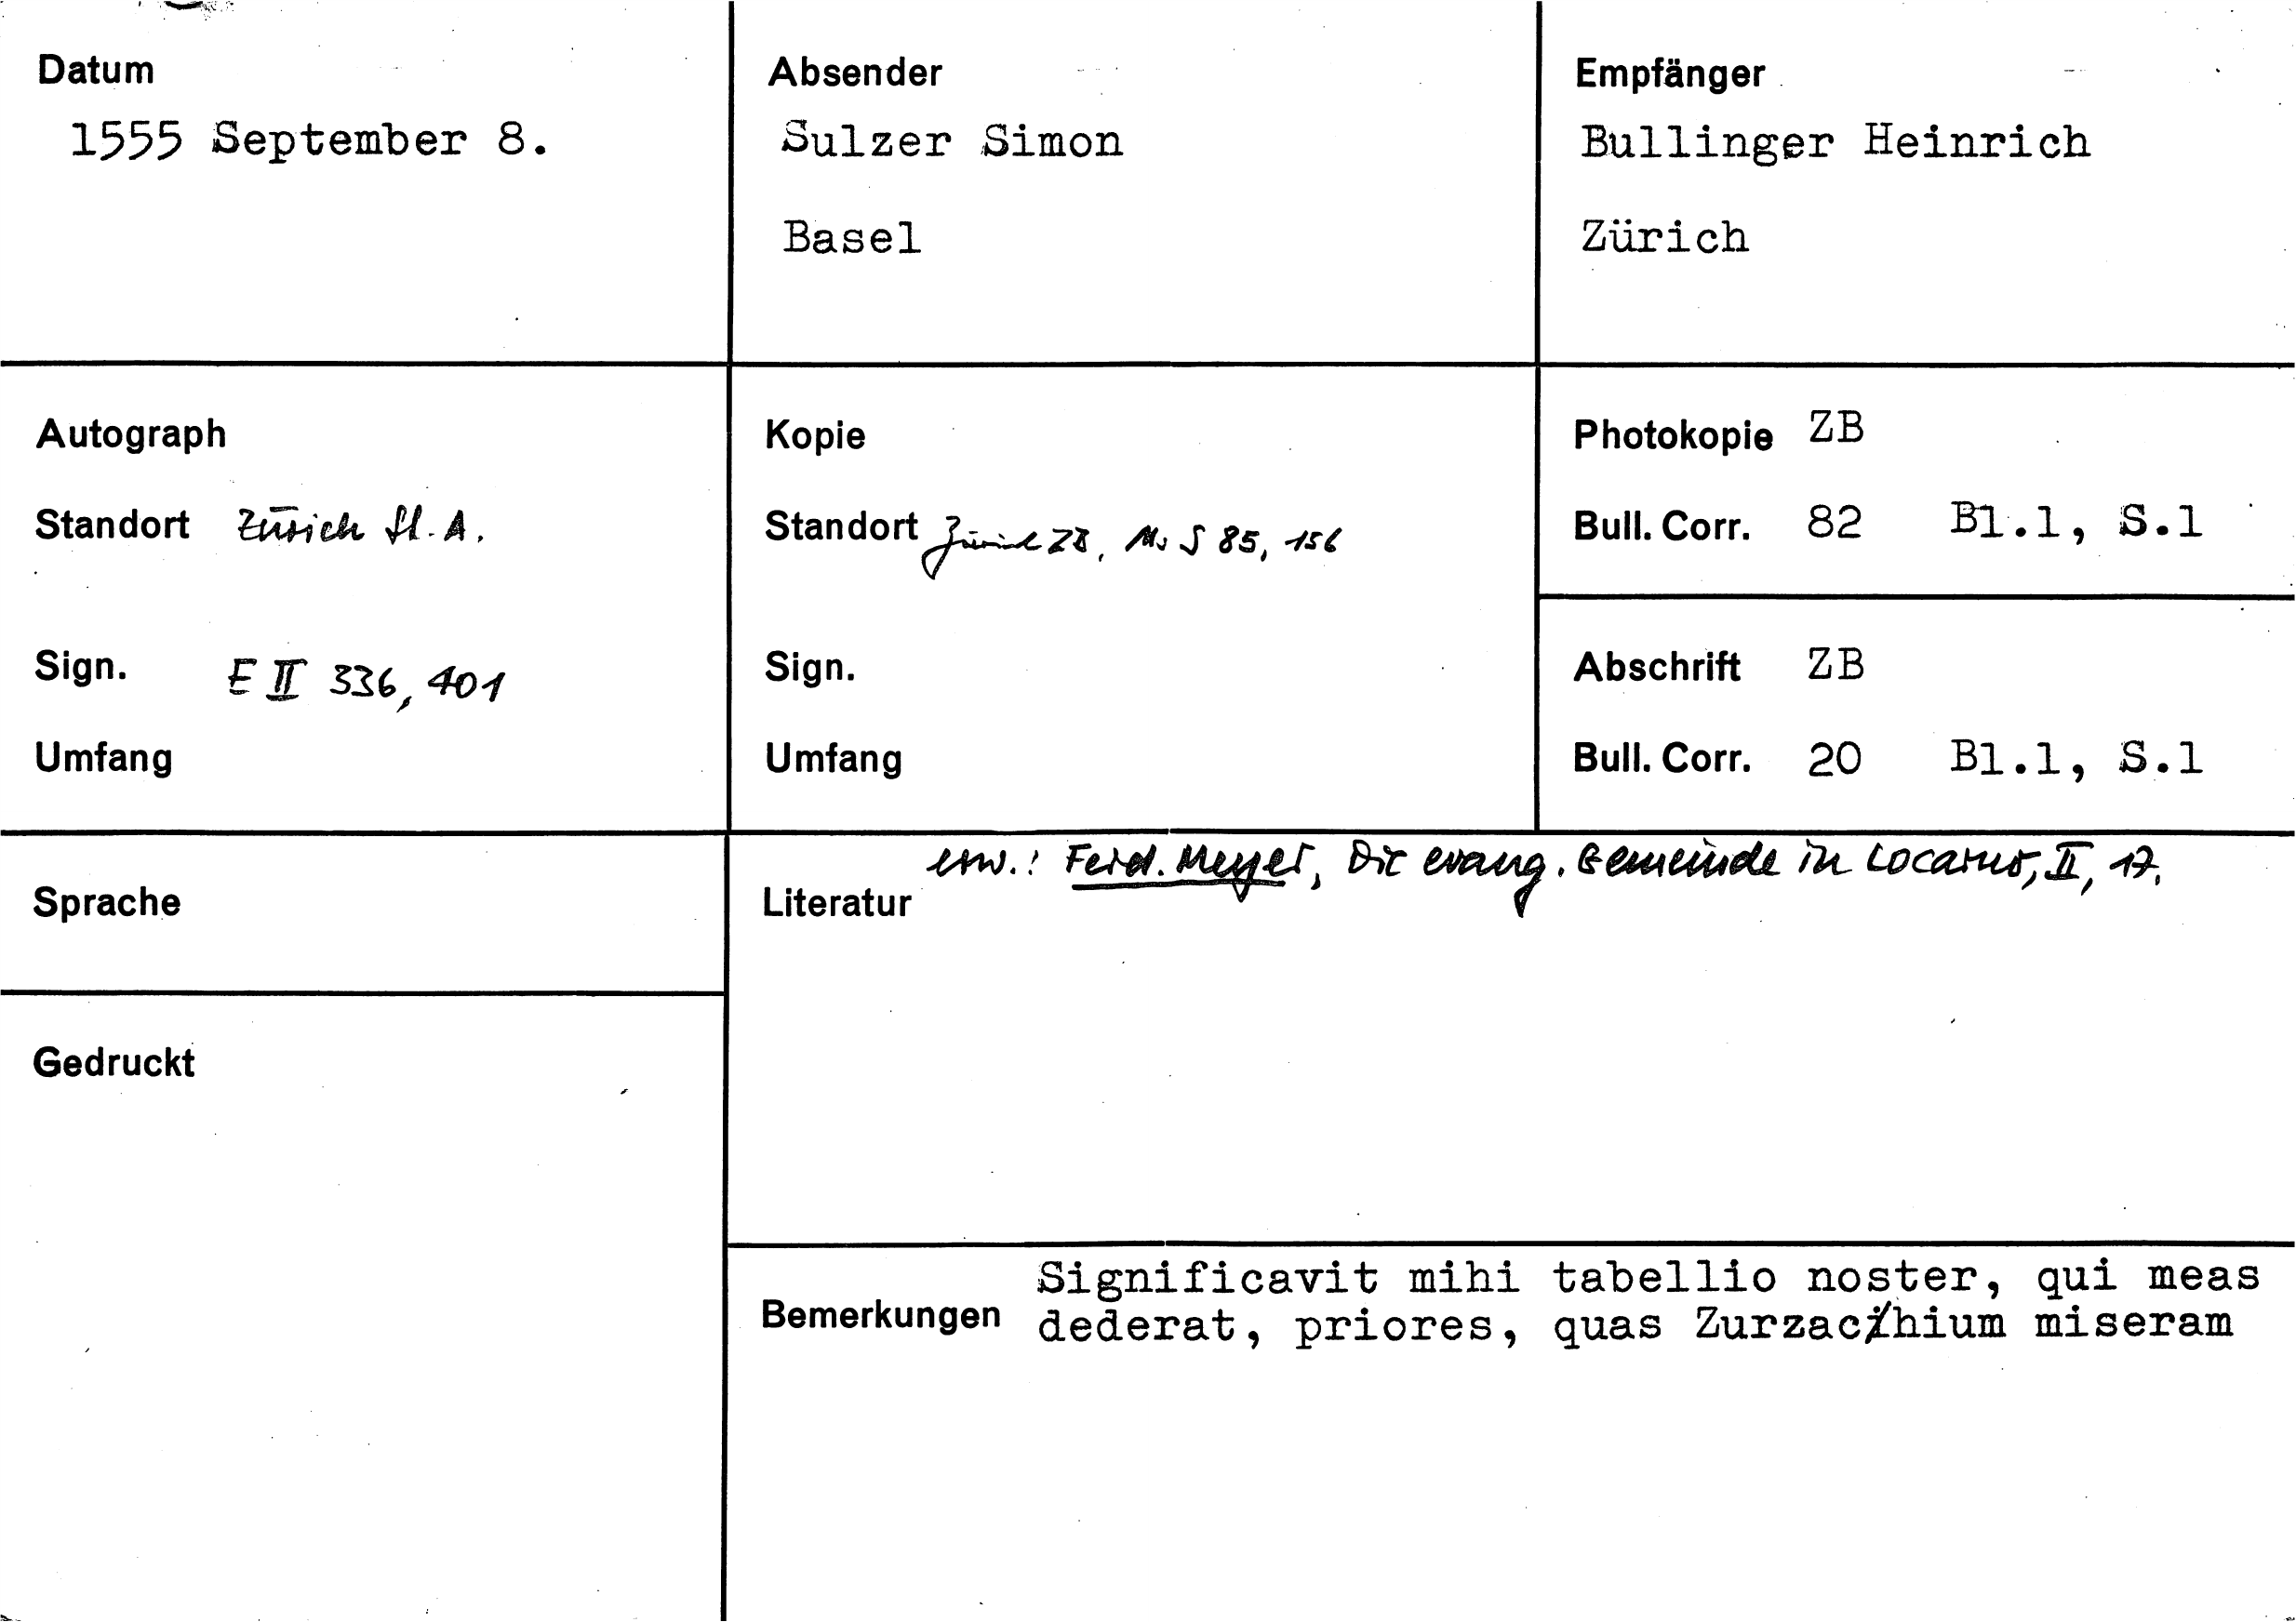 Datum
1555 September 8.
Absender
Sulzer Simon
Basel
Empfänger
Bullinger Heinrich
Zürich
Autograph
Standort Zürich St. A.
Sign. E II 336, 401
Umfang
Kopie
Standort Zürich ZB, Ms S 85, 156
Sign.
Umfang
Photokopie ZB
Bull. Corr. 82 Bl.1, S.1
Abschrift ZB
Bull. Corr. 20 Bl.1, S.1
Sprache
Gedruckt
erw.: Ferd. Meyer, Die evang. Gemeinde in Locarno, II, 17.
Literatur
Significavit mihi tabellio noster, qui meas
Bemerkungen dederat, priores, quas Zurzachium miseram